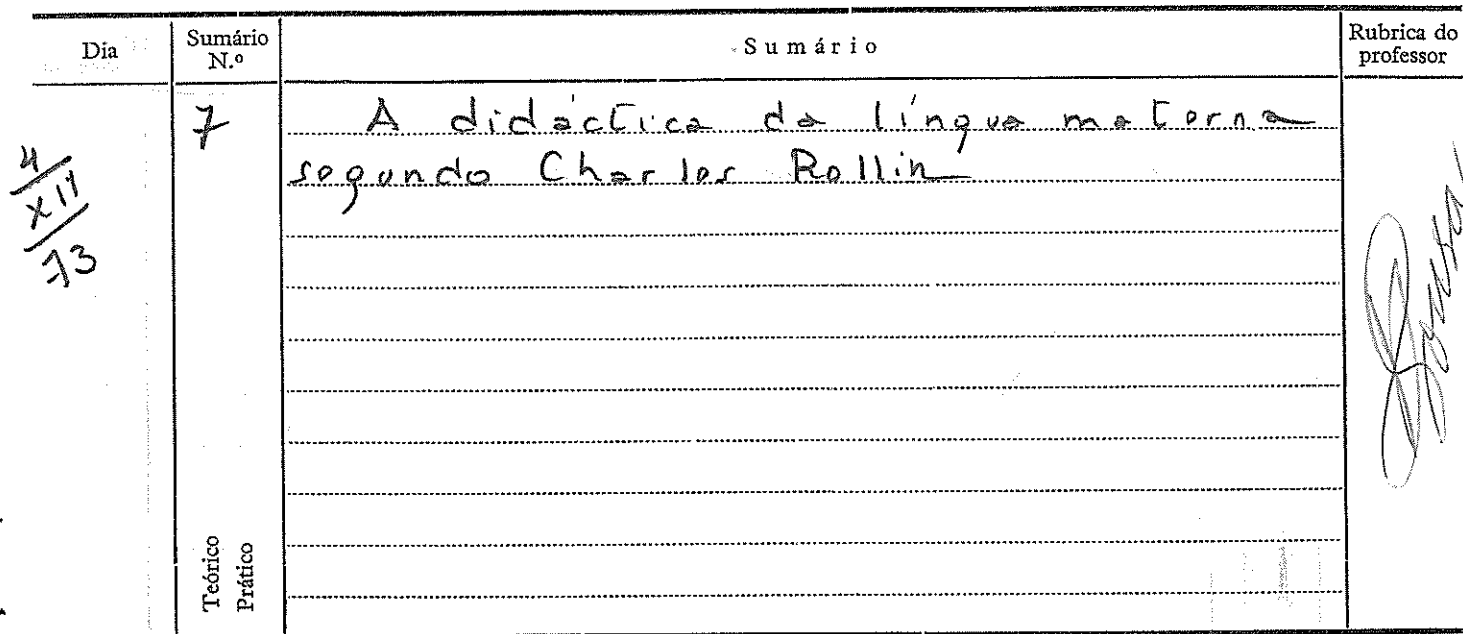 Dia
Sumário
N.º
Sumário
Rubrica do
professor
4
XII
73
7
A didáctica da língua materna
segundo Charles Rollin
Teórico
Prático